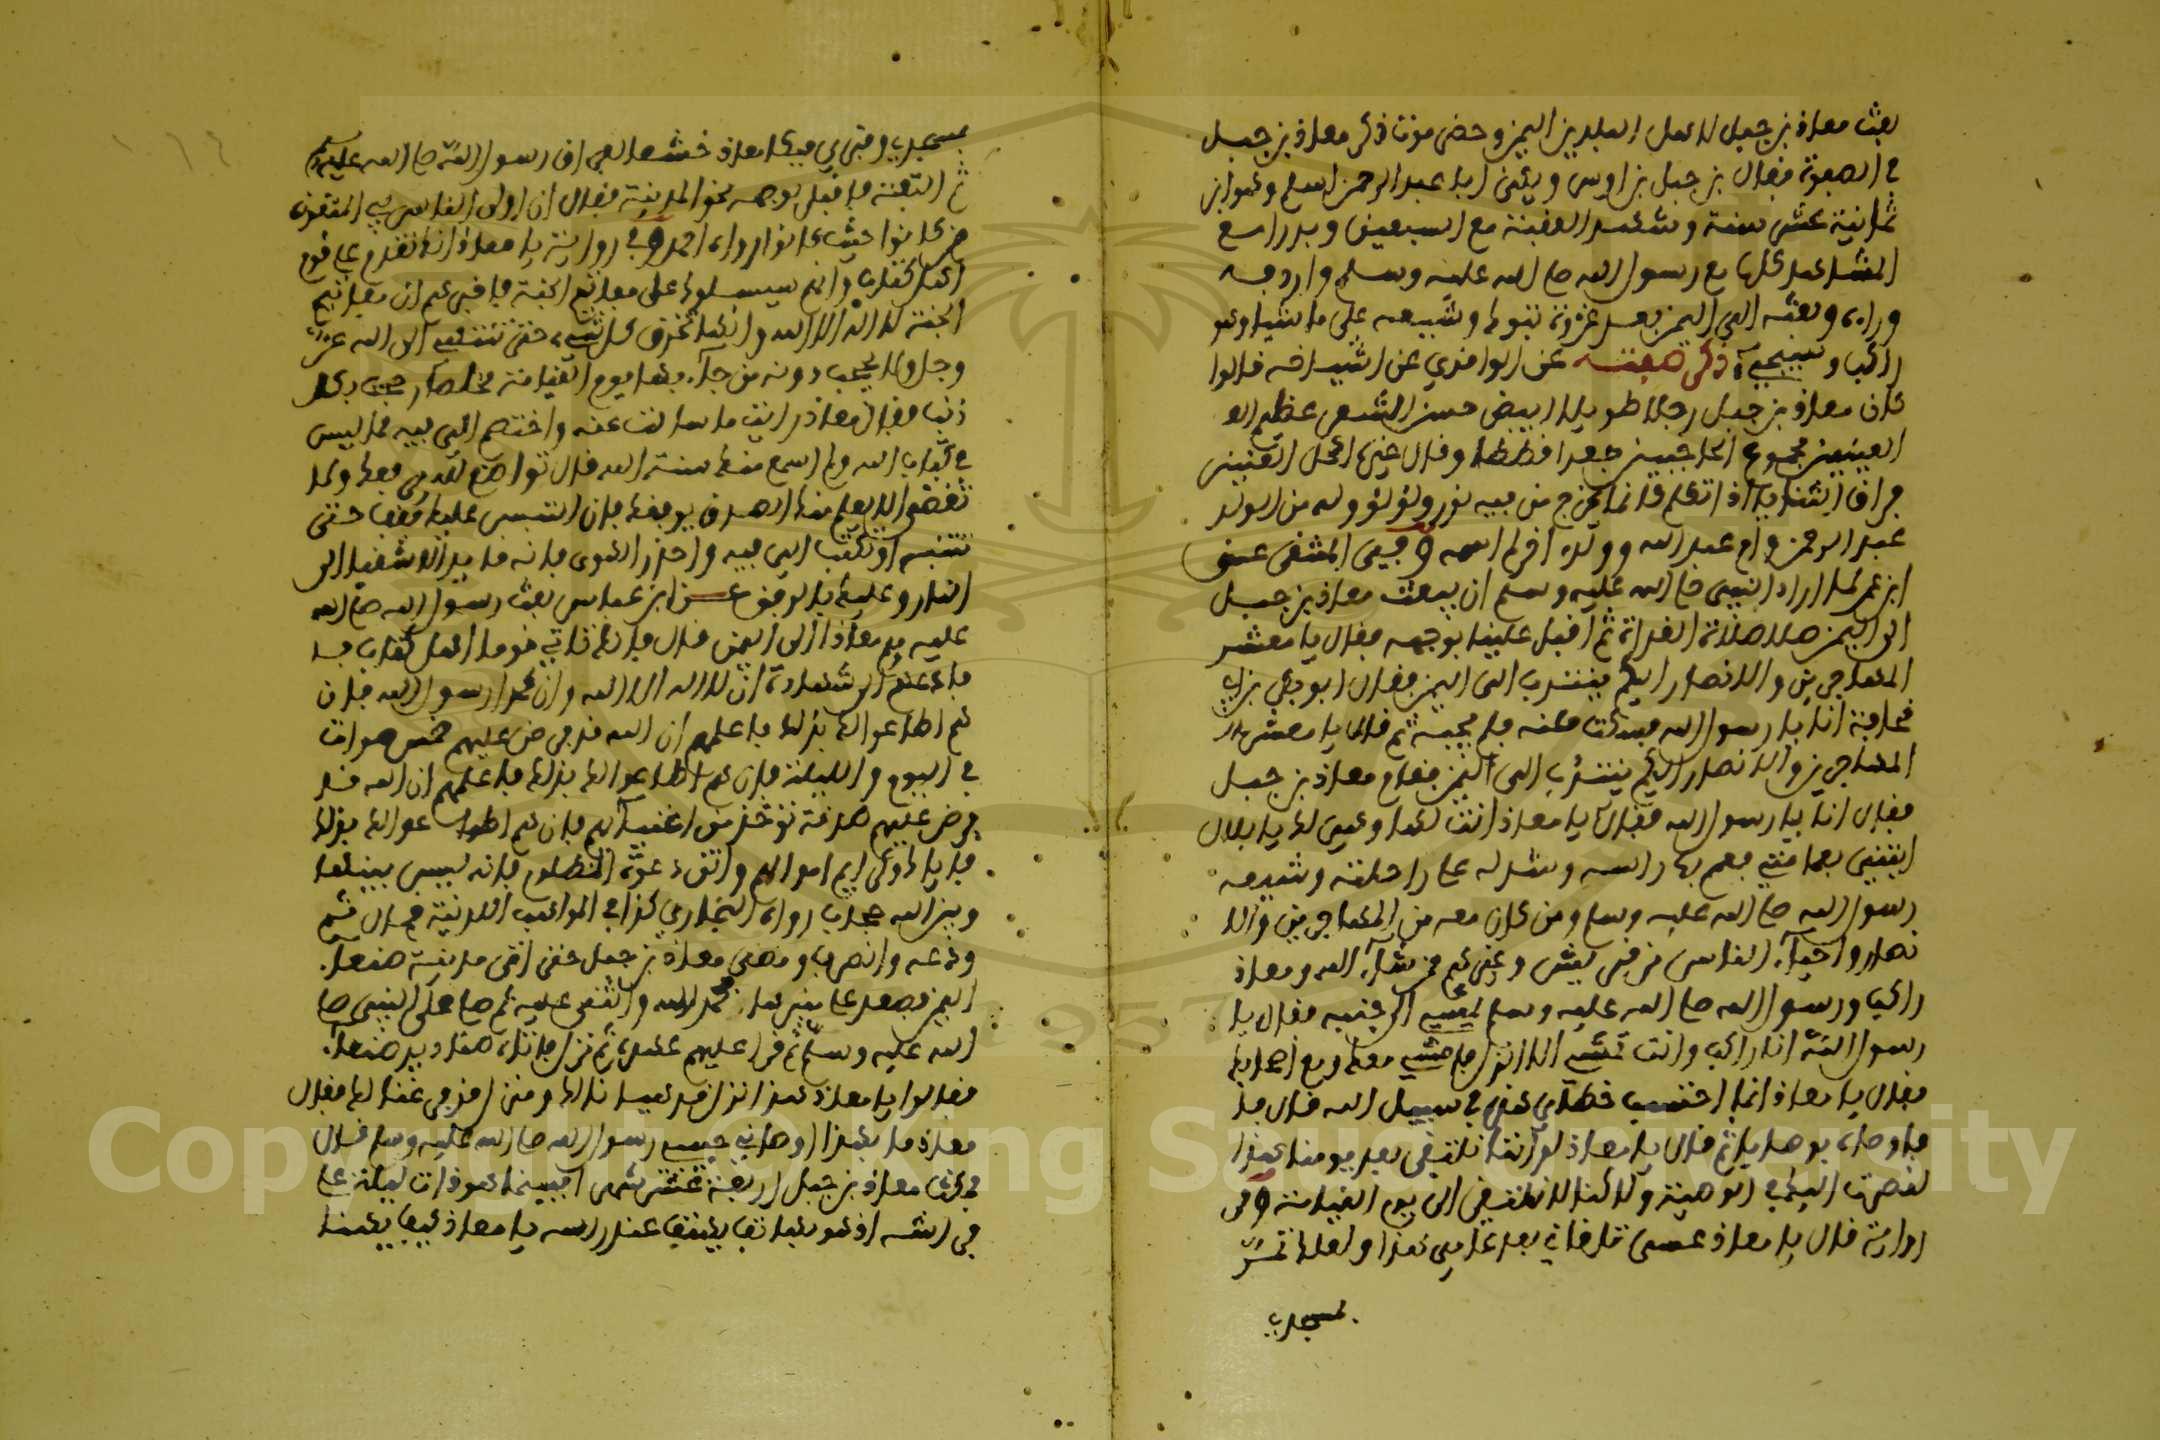 بعث معاذ بن جبل لاهل البلدين اليمن وحضرموت ذكر معاذ بن جبل
في الصفوة فقال بن جبل بن اوس ويكنى ابا عبد الرحمن اسلم وهو ابن
ثمانية عشر سنة وشهد العقبة مع السبعين وبدرا مع
المشاهد كلها مع رسول الله صلى الله عليه وسلم واردفه
وراءه وبعثه الى اليمن بعد غزوة تبوك وشيعه على ماشيا وهو
راكب ذكر صفته عن الواقدي عن اشياخه قالوا
كان معاذ بن جبل رجلا طويلا ابيض حسن الشعر عظيم
العينين مجموع الحاجبين جعدا قططا وقال غيره اكحل العينين
براق الثنايا اذا تكلم كانما يخرج من فيه نور ولؤلؤ وله من الولد
عبد الرحمن وام عبد الله وولد اخر لم
ابن عمر لما اراد النبي صلى الله عليه وسلم ان يبعث معاذ بن جبل
الى اليمن صلا صلاة الغداة ثم اقبل علينا بوجهه فقال يا معشر
المهاجرين والانصار ايكم ينتدب الى اليمن فقال ابو بكر بن ابي
قحافة انا يا رسول الله فسكت عنه فلم يجبه ثم قال يا معشر
المهاجرين والانصار ايكم ينتدب الى اليمن فقام معاذ بن جبل
فقال انا يا رسول الله فقال يا معاذ انت لها وهي لك يا بلال
ايتني بعمامتي فعمم بها راسه وشد له على راحلته وشيعه
رسول الله صلى الله عليه وسلم ومن كان معه من المهاجرين والا
نصار واحياء الناس من قريش وغيرهم من شاء الله ومعاذ
راكب ورسول الله صلى الله عليه وسلم يمشي الى جنبه فقال يا
رسول الله انا راكب وانت تمشي الا انزل فامشي معك ومع اصحابك
فقال يا معاذ انما احتسب خطاي هذه في سبيل الله قال
فاوصاه بوصايا ثم قال يا معاذ لو اننا نلتقي بعد يومنا هذا
لقصرت اليك في الوصية ولاكننا لا نلتقي الى يوم القيامة وفي
رواية قال يا معاذ عسى تلقاني بعد عامي هذا ولعلك تمر
بمسجدي
بمسجدي وقبري فبكا معاذ خشعا لفراق رسول الله صلى الله عليه وسلم
ثم التفت فاقبل بوجهه نحو المدينة فقال ان اولى الناس بي المتقون
من كانوا حيث كانوا رواه احمد وفي رواية يا معاذ انك تقدم على قوم
اهل كتاب وانهم سيسئلوك على مفاتيح الجنة فاخبرهم ان مفاتيح
الجنة لا اله الا الله وانها تخرق كل شيء حتى تنتهي الى الله عز
وجل ولا يحجب دونه من جاء بها يوم القيامة مخلصا رجحت بكل
ذنب فقال معاذ ارايت ما سالت عنه واختصم الي فيه مما ليس
في كتاب الله ولم اسمع منك سنة الله قال تواضع لله يرفعك ولا
تقض الا بعلم فان التبس عليك فقف حتى
تتبينه او تكتب الي فيه واحذر الهوى فانه قايد الاشقياء الى
النار وعليك بالرفق عن ابن عباس بعث رسول الله صلى الله
عليه وسلم معاذا الى اليمن فقال فانك تاتي قوما اهل كتاب
فادعهم الى شهادة ان لا اله الا الله وان محمدا رسول الله فان
هم اطاعوا لك بذلك فاعلمهم ان الله قد فرض عليهم خمس صلوات
في اليوم والليلة فان هم اطاعوا لك بذلك فاعلمهم ان الله قد
فرض عليهم صدقة تؤخذ من اغنيائهم فان هم اطاعوا لك بذلك
فاياك وكرايم اموالهم واتق دعوة المظلوم فانه ليس بينها
وبين الله حجاب رواه البخاري كذا في المواهب اللدنية قال ثم
ودعه وانصرف ومضى معاذ بن جبل حتى اتى مدينة صنعاء
اليمن فصعد على منبرها فحمد الله واثنى عليه ثم صلى على النبي صلى
الله عليه وسلم ثم قرا عليهم عهده ثم نزل فاتاه صناديد صنعاء
فقالوا يا معاذ هذا نزل قد هيانا لك ومنزل فرغنا لك فقال
معاذ ما بهذا اوصاني حبيبي رسول الله صلى الله عليه وسلم قال
فمكث معاذ بن جبل اربعة عشر شهرا فبينما هو ذات ليلة على
فراشه اذ هو بهاتف يهتف عند راسه يا معاذ كيف يهنا